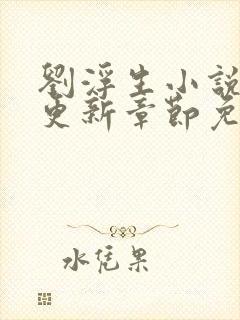 劉浮生小說
更新章節免
水凭果